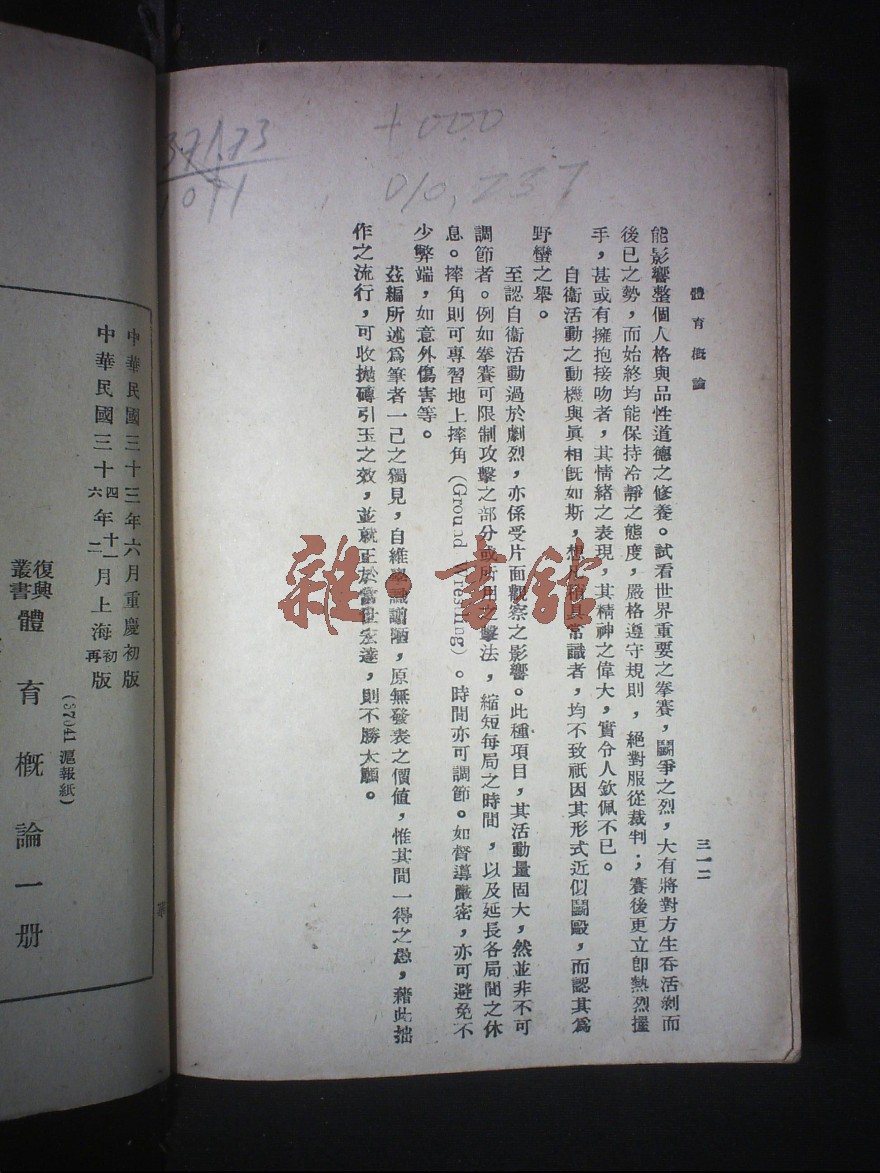 體育概論
三一二
能影響整個人格與品性道德之修養。試看世界重要之拳賽，鬭爭之烈，大有將對方生吞活剝而
後已之勢，而始終均能保持冷靜之態度，嚴格遵守規則，絕對服從裁判；賽後更立卽熱烈握
手，甚或有擁抱接吻者，其情緒之表現，其精神之偉大，實令人欽佩不已。
自衞活動之動機與眞相旣如斯，想凡稍具常識者，均不致祇因其形式近似鬭毆，而認其爲
野蠻之舉。
至認自衞活動過於劇烈，亦係受片面觀察之影響。此種項目，其活動量固大，然並非不可
調節者。例如拳賽可限制攻擊之部分或所用之擊法，縮短每局之時間，以及延長各局間之休
息。摔角則可專習地上摔角(Ground Wrestling)。時間亦可調節。如督導嚴密，亦可避免不
少弊端，如意外傷害等。
茲編所述爲筆者一己之獨見，自維學識譾陋，原無發表之價値，惟其間一得之愚，藉此拙
作之流行，可收拋磚引玉之效，並就正於當世宏達，則不勝大願。
371.73
1091
+000
010,237
雜·書館
中華民國三十三年六月重慶初版
中華民國三十四年十一月上海初版
六 二 再
(37041滬報紙)
復興叢書 體育概論一册